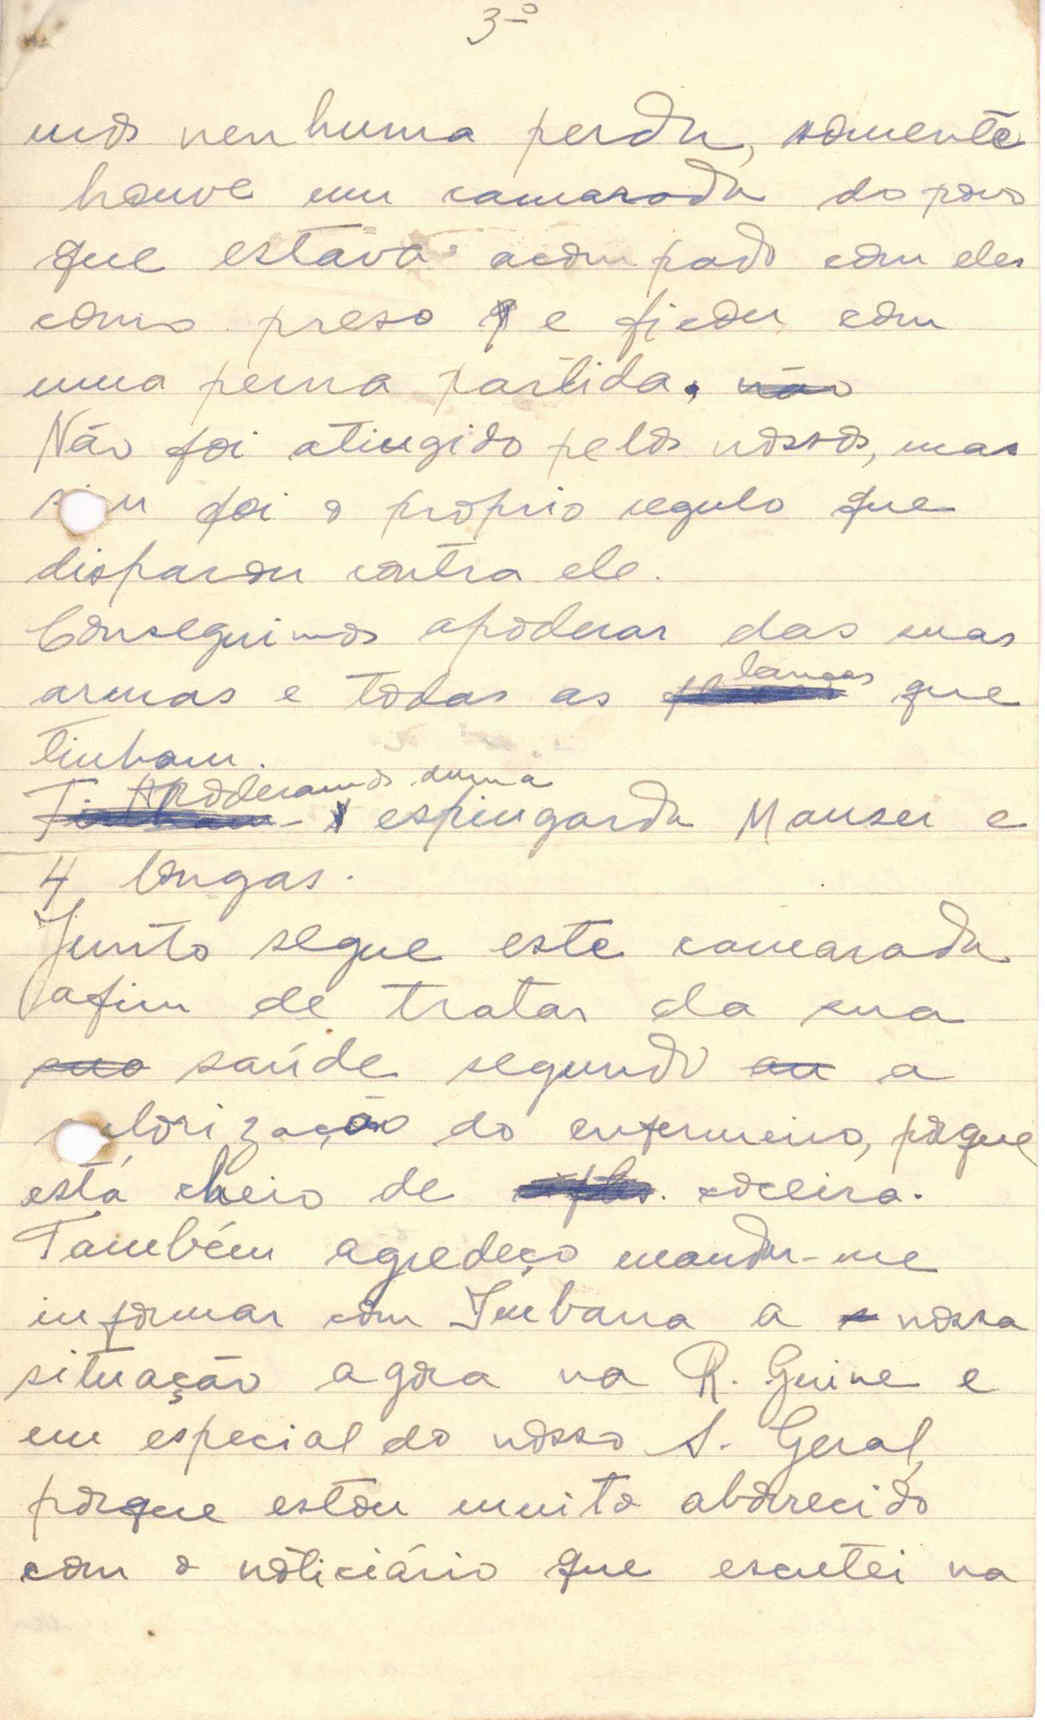 3º
mos nenhuma perda, somente
houve um camarada do povo
que estava acompado com eles
como preso e ficou com
uma perna partida. não
Não foi atingido pelos nossos, mas
foi o próprio regulo que
disparou contra ele.
Conseguimos apoderar das suas
armas e todas as lanças que
tinham.
Apoderamos duma
Tinham espingarda Mauser e
4 longas.
Junto segue este camarada
afim de tratar da sua
sua saúde segundo au a
do enfermeiro, porque
está cheio de coceira.
Também agredeço mandar-me
informar com Imbana a nossa
situação agora na R. Guine e
em especial do nosso S. Geral,
porque estou muito aborecido
com o noticiário que escutei na